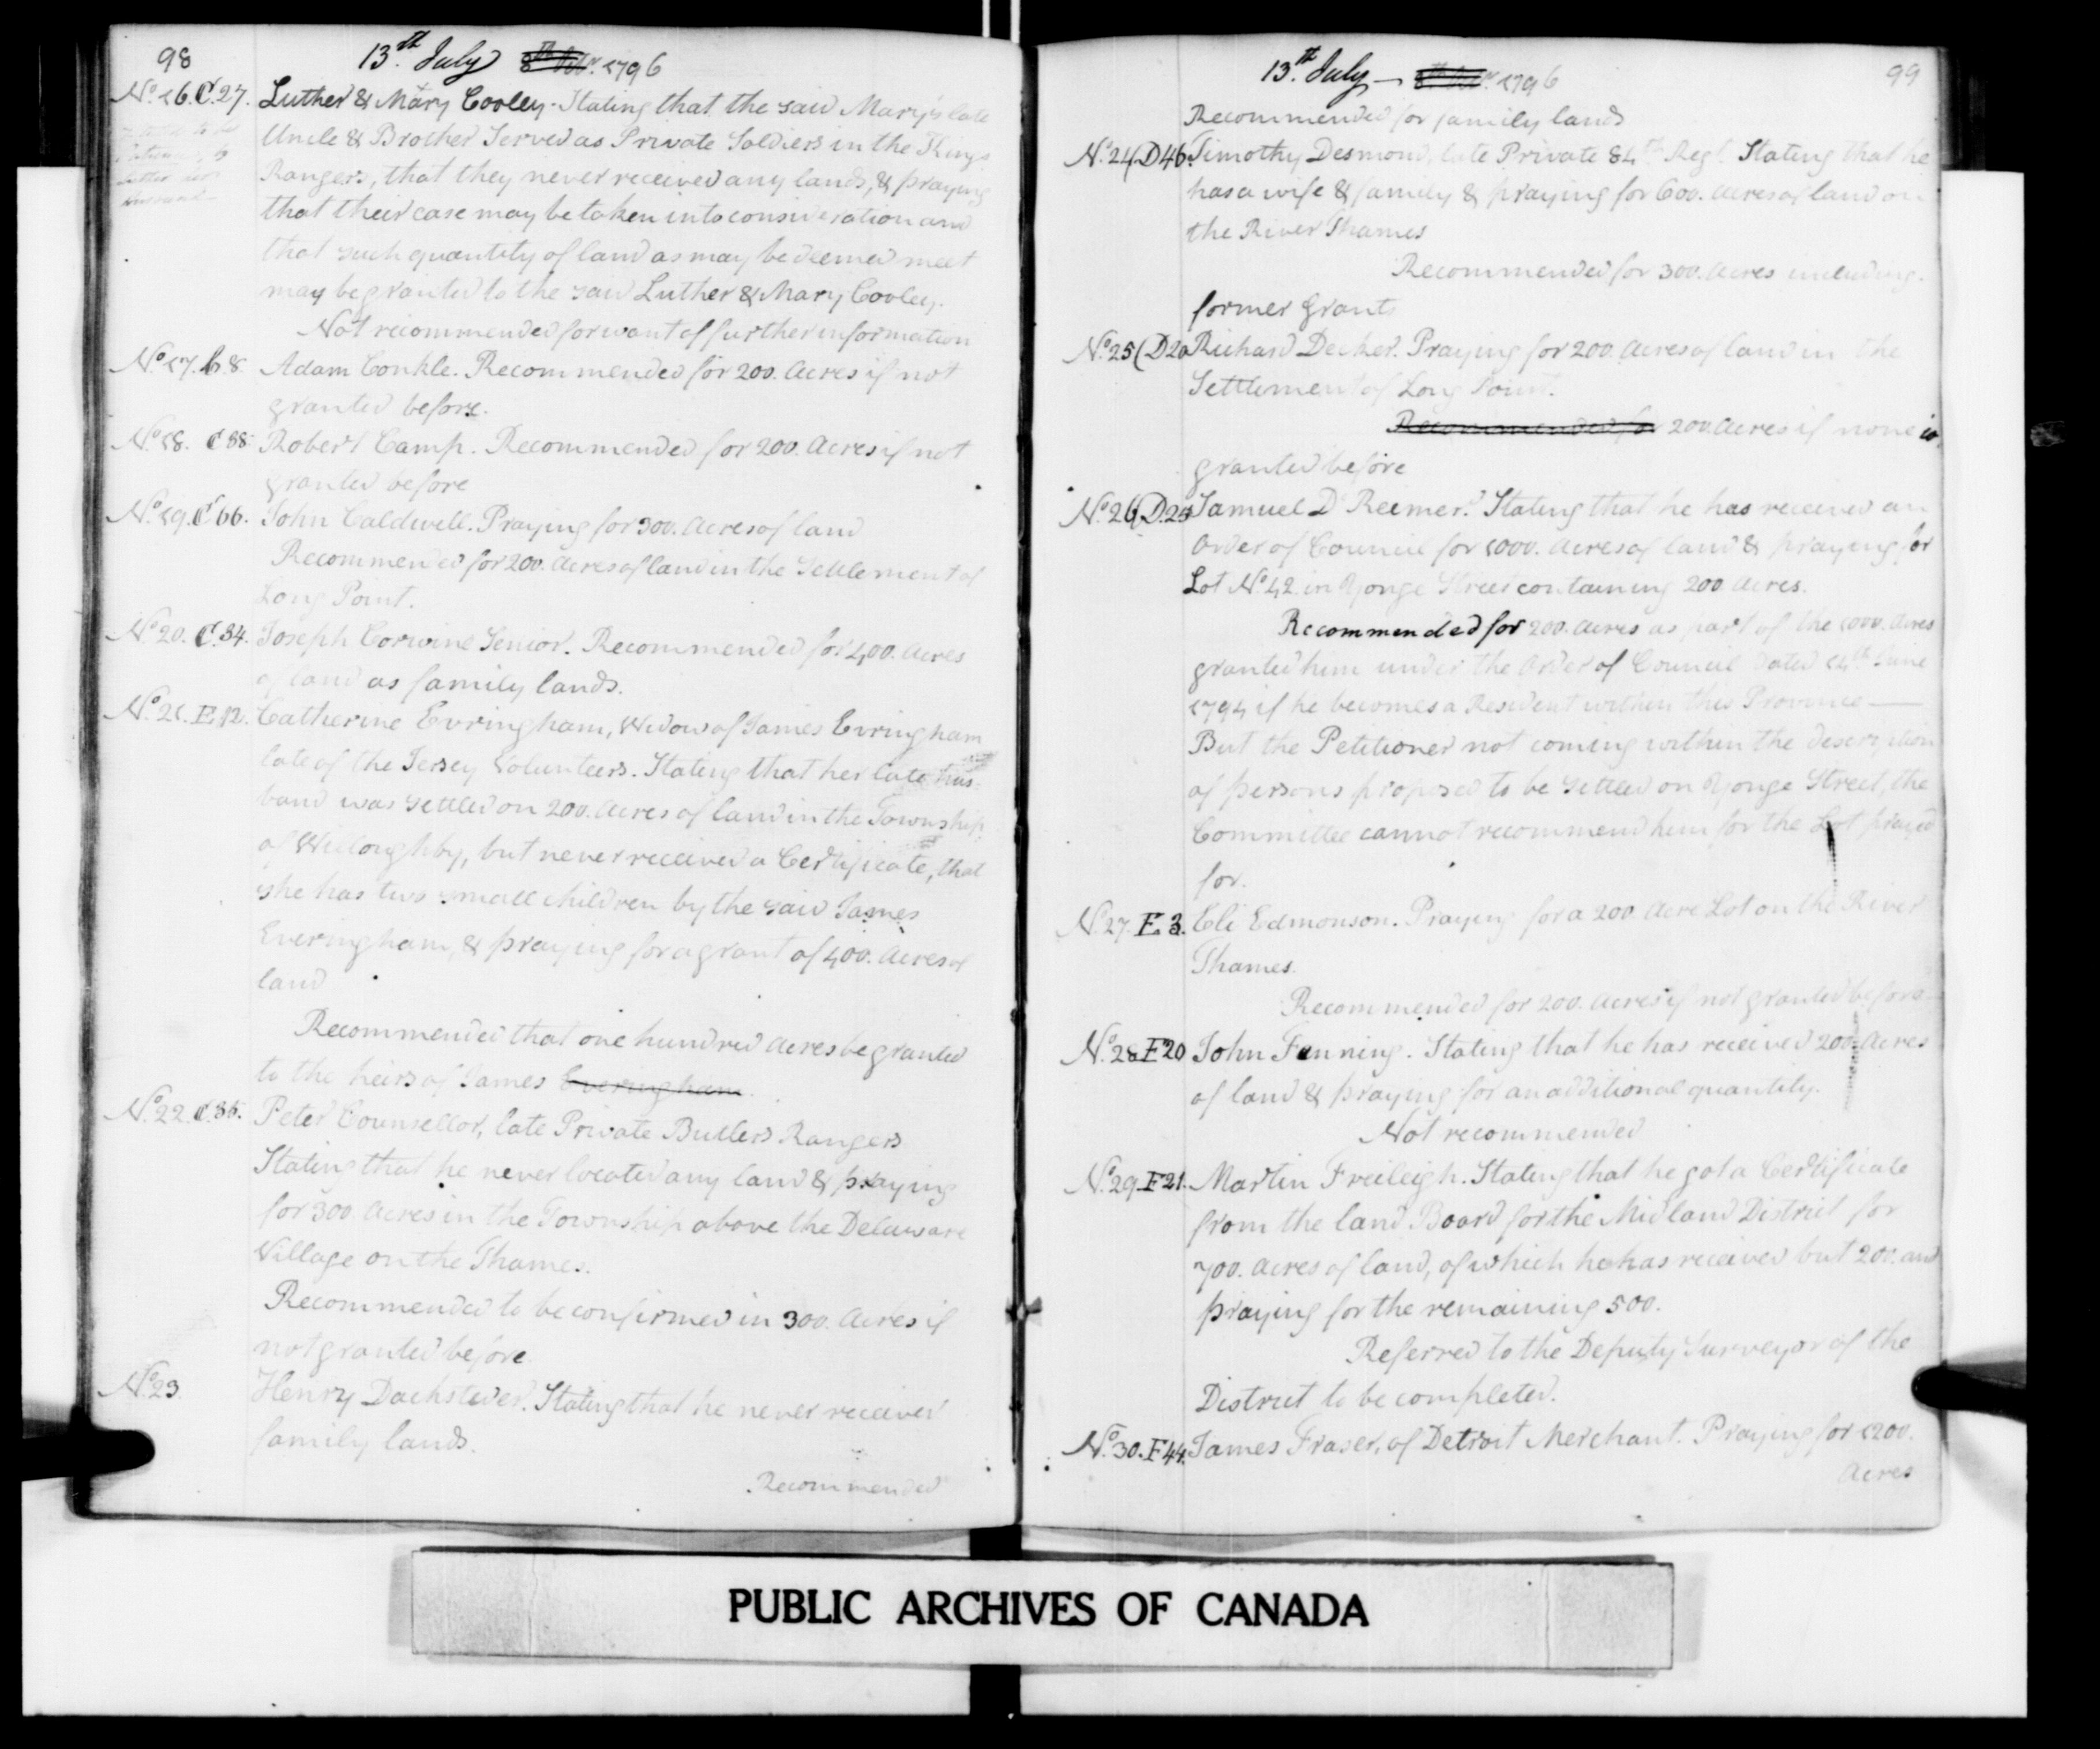 98
13th July 1796
No. 16. C. 27. Luther & Mary Cooley. Stating that the said Mary's late
Uncle & Brother Served as Private Soldiers in the Kings
Rangers, that they never received any lands, & praying
that their case may be taken into consideration and
that such quantity of land as may be deemed meet
may be granted to the said Luther & Mary Cooley.
Not recommended for want of further information
No. 17. C. 8. Adam Conkle. Recommended for 200. Acres if not
granted before.
No. 18. C 88 Robert Camp. Recommended for 200. Acres if not
granted before
No. 19. C 66. John Caldwell. Praying for 300. Acres of land
Recommended for 200. Acres of land in the Settlement of
Long Point.
No. 20. C. 34. Joseph Corwine Senior. Recommended for 400. Acres
of land as family lands.
No. 21. E. 12. Catherine Evringham, Widow of James Evringham
late of the Jersey Volunteers. Stating that her late hus
band was settled on 200. Acres of land in the Township
of Willoughby, but never received a Certificate, that
she has two small children by the said James
Everingham, & praying for a grant of 400. Acres of
land
Recommended that one hundred acres be granted
to the heirs of James Everingham.
No. 22. C. 35. Peter Counsellor, late Private Butlers Rangers
Stating that he never located any land & praying
for 300. Acres in the Township above the Delaware
Village on the Thames.
Recommended to be confirmed in 300. Acres if
not granted before
No. 23. Henry Dachsteder. Stating that he never received
family lands.
Recommended
13th July 1796
99
Recommended for family lands
No. 24 (D 46. Timothy Desmond, late Private 84th Regt. Stating that he
has a wife & family & praying for 600. Acres of land on
the River Thames
Recommended for 300. Acres including
former Grants
No. 25 (D20 Richard Decker. Praying for 200. Acres of land in the
Settlement of Long Point.
Recommended for 200. Acres if none
granted before
No. 26 (D.25 Samuel D Reemer. Stating that he has received an
Order of Council for 1000. Acres of land & praying for
Lot No. 42. in Yonge Street containing 200 Acres.
Recommended for 200. Acres as part of the 1000. Acres
granted him under the Order of Council dated 14th June
1794 if he becomes a Resident within this Province —
But the Petitioner not coming within the description
of persons proposed to be settled on Yonge Street, the
Committee cannot recommend him for the Lot prayed
for.
No. 27. E 3. Eli Edmonson. Praying for a 200 Acre Lot on the River
Thames.
Recommended for 200. Acres if not granted before
No. 28 F20 John Fanning. Stating that he has received 200. Acres
of land & praying for an additional quantity.
Not recommended
No. 29. F21. Martin Freileigh. Stating that he got a Certificate
from the land Board for the Midland District for
700. Acres of land, of which he has received but 200. and
praying for the remaining 500.
Referred to the Deputy Surveyor of the
District to be completed.
No. 30. F44. James Fraser, of Detroit Merchant. Praying for 1200.
Acres
PUBLIC ARCHIVES OF CANADA